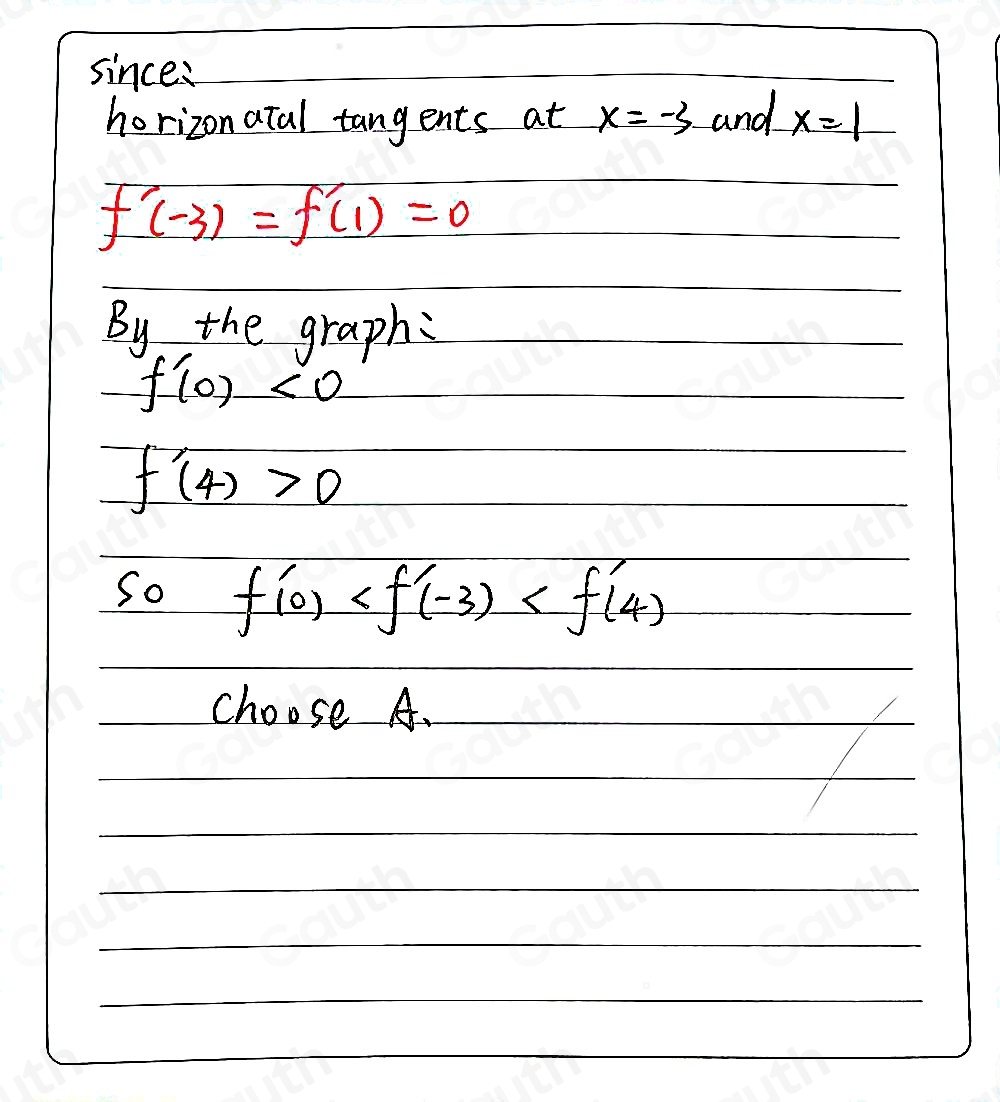 since:
horizonatal tangents at x=-3 and x=1
f'(-3) = f'(1) = 0
By the graph:
f'(0) < 0
f'(4) > 0
so f'(0) < f'(-3) < f'(4)
choose A.